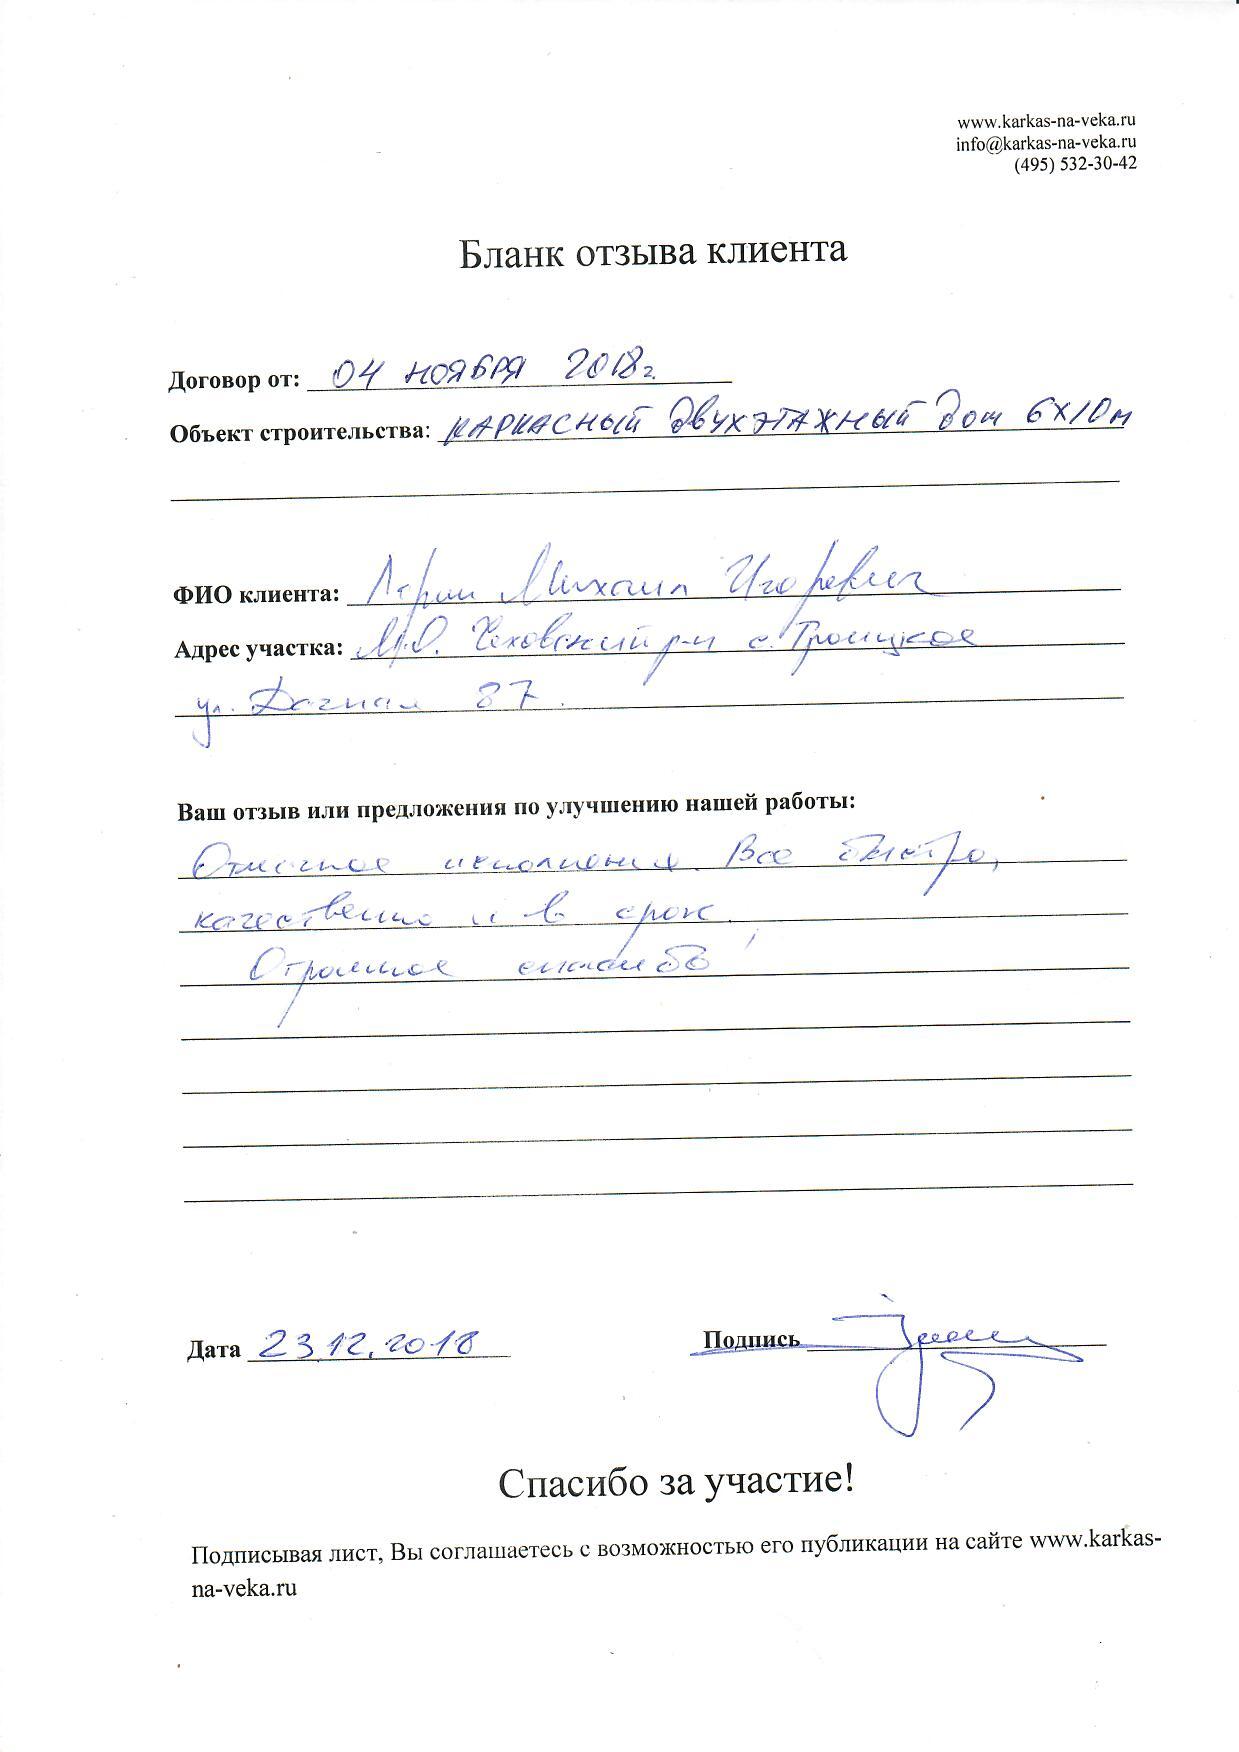 www.karkas-na-veka.ru
info@karkas-na-veka.ru
(495) 532-30-42
Бланк отзыва клиента
Договор от: 04 НОЯБРЯ 2018г.
Объект строительства: КАРКАСНЫЙ ДВУХЭТАЖНЫЙ ДОМ 6Х10м
ФИО клиента: Михаил Игоревич
Адрес участка: М.О. Чеховский р-н с. Троицкое
ул. Дачная 87.
Ваш отзыв или предложения по улучшению нашей работы:
Отличное исполнение. Все быстро,
качественно и в срок.
Огромное спасибо!
Дата 23.12.2018
Подпись
Спасибо за участие!
Подписывая лист, Вы соглашаетесь с возможностью его публикации на сайте www.karkas-
na-veka.ru